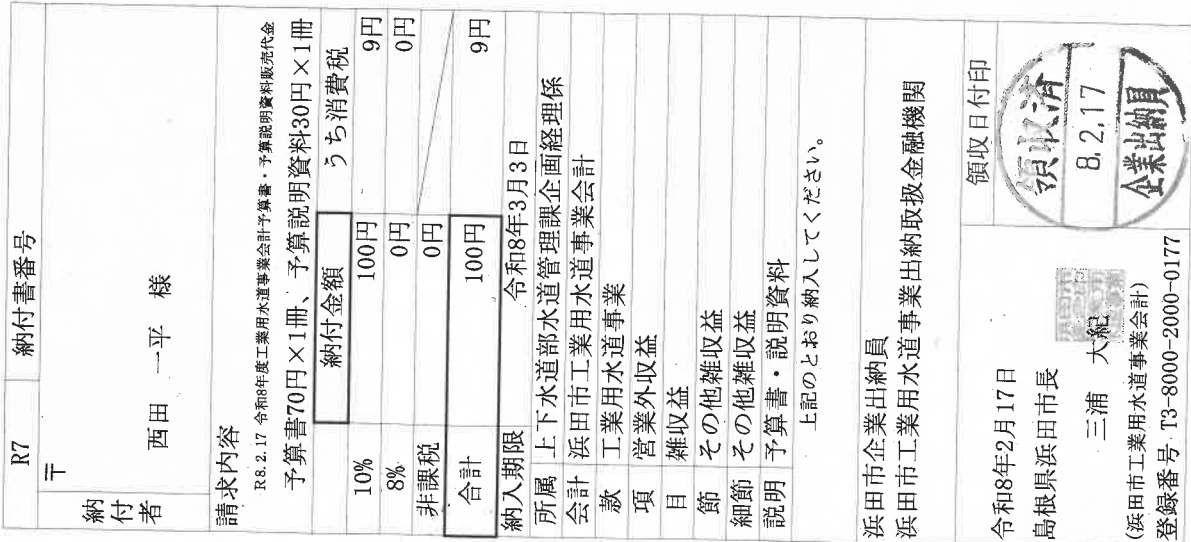 R7 納付書番号
納付者
〒
西田 一平 様
請求内容
R8.2.17 令和8年度工業用水道事業会計予算書・予算説明資料販売代金
予算書70円×1冊、予算説明資料30円×1冊
納付金額 うち消費税
10% 100円 9円
8% 0円 0円
非課税 0円
合計 100円 9円
納入期限 令和8年3月3日
所属 上下水道部水道管理課企画経理係
会計 浜田市工業用水道事業会計
款 工業用水道事業
項 営業外収益
目 雑収益
節 その他雑収益
細節 その他雑収益
説明 予算書・説明資料
上記のとおり納入してください。
浜田市企業出納員
浜田市工業用水道事業出納取扱金融機関
令和8年2月17日
島根県浜田市長
三浦 大紀
(浜田市工業用水道事業会計)
登録番号 T3-8000-2000-0177
領収日付印
領収済
8.2.17
企業出納員